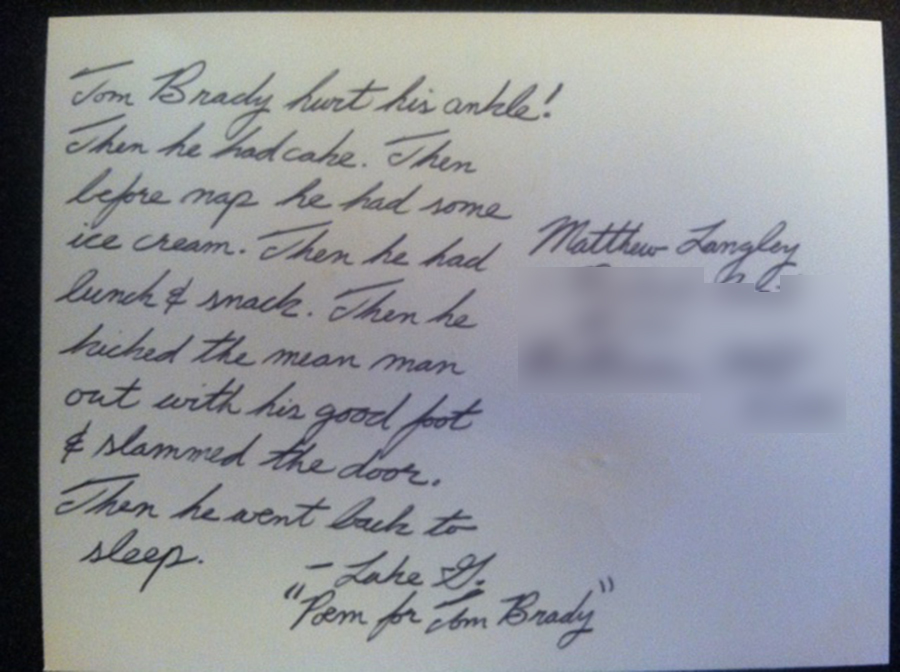 Tom Brady hurt his ankle!
Then he had cake. Then
before nap he had some
ice cream. Then he had
lunch & snack. Then he
kicked the mean man
out with his good foot
& slammed the door.
Then he went back to
sleep.
– Lake G.
"Poem for Tom Brady"
Matthew Langley